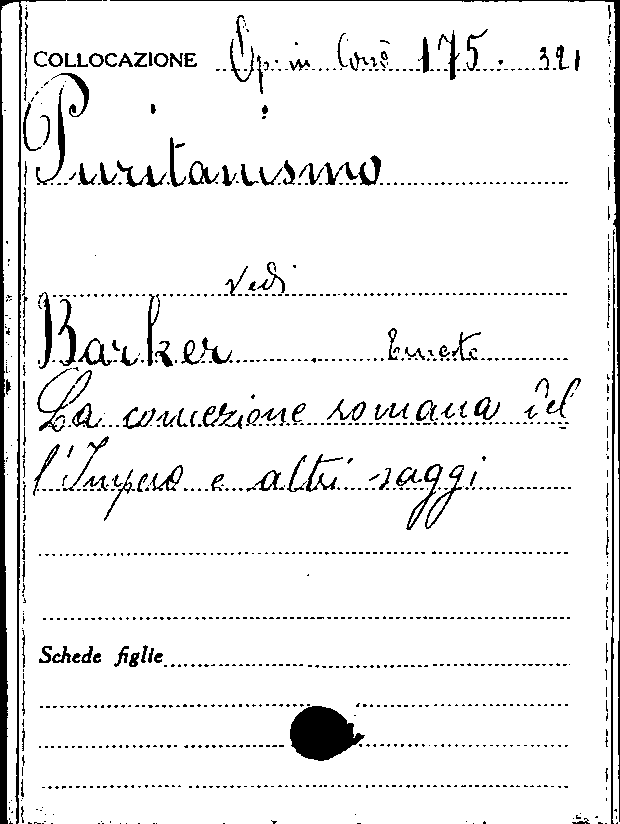 COLLOCAZIONE Op. in Corrò 175. 321
Puritanismo
vedi
Barker Ernesto
La concezione romana del
l'Impero e altri saggi
Schede figlie